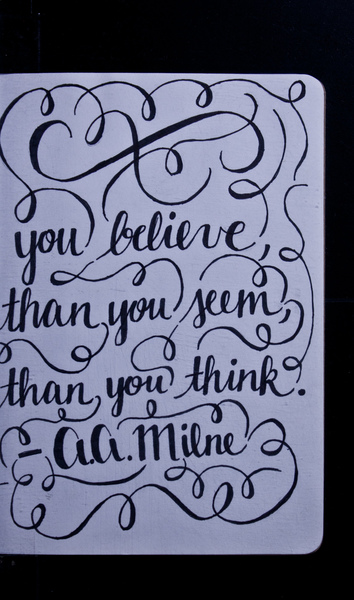 you believe,
than you seem,
than you think.
- A.A. Milne